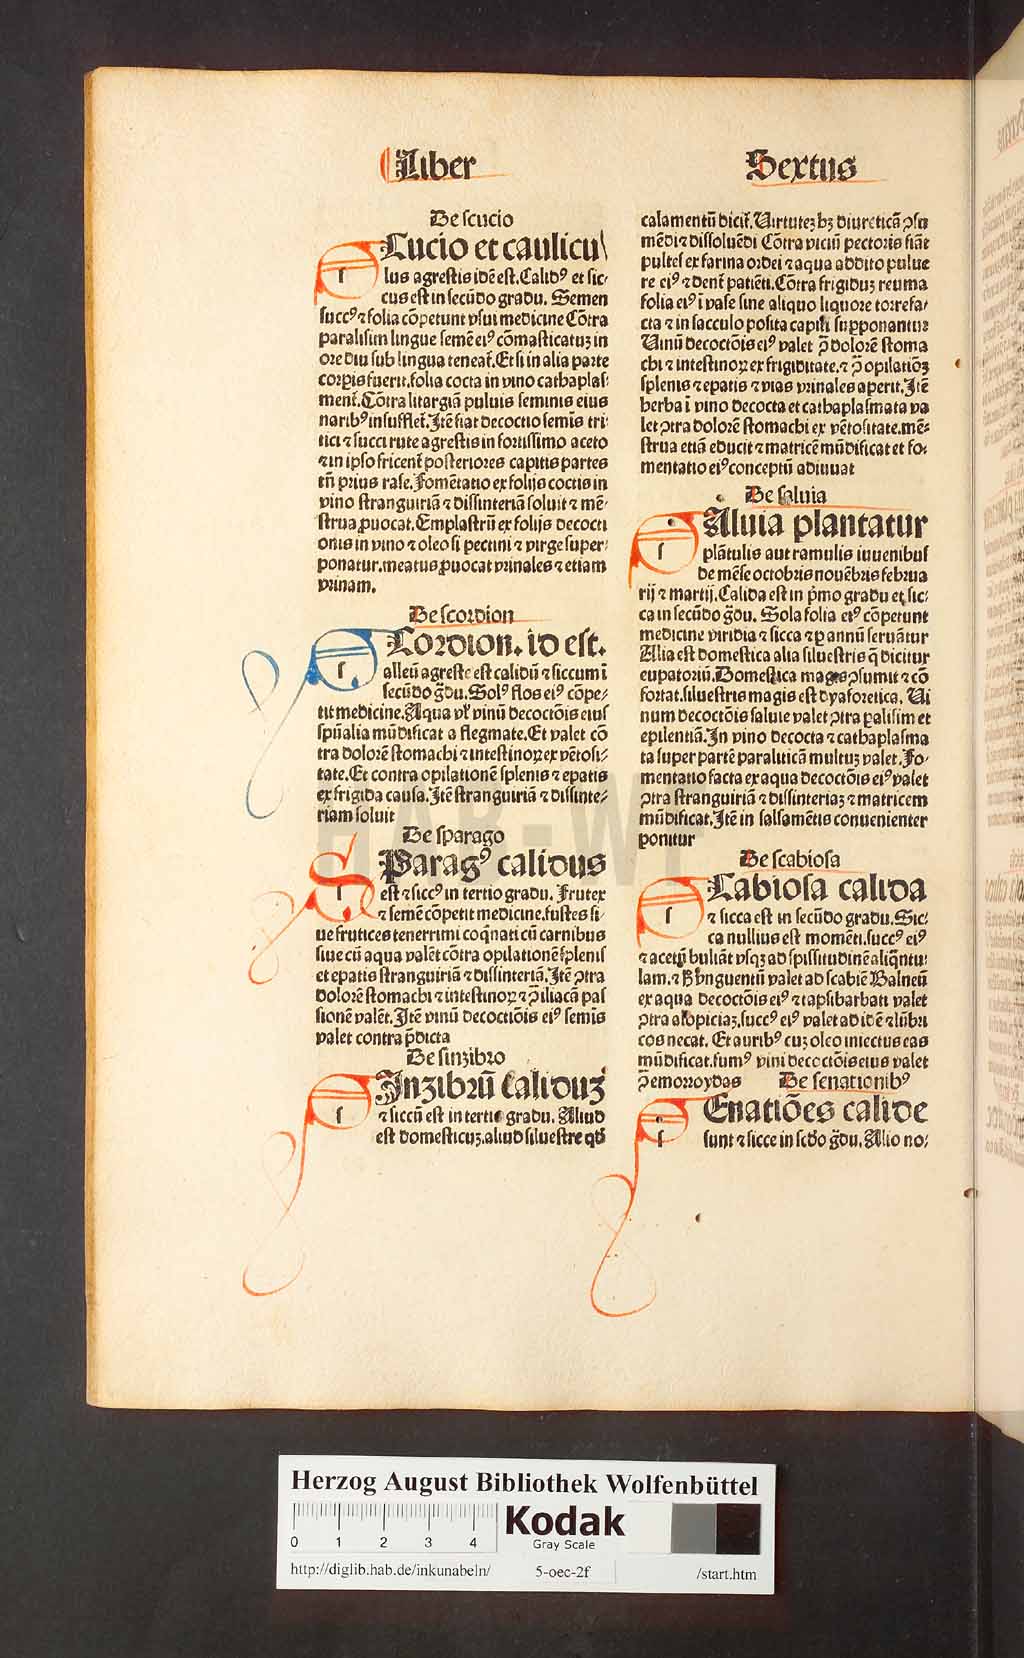 Liber
Sextus
De scucio
Lucio et caulicu
s lus agrestis idē est. Calidꝰ et sic⸗
cus est in secūdo gradu. Semen
succꝰ ⁊ folia cōpetunt vsui medicine Cōtra
paralisim lingue semē eiꝰ cōmasticatuȝ in
ore diu sub lingua teneat̄. Et si in alia parte
corꝑis fuerit. folia cocta in vino cathaplas⸗
ment̄. Cōtra litargiā puluis seminis eius
naribꝰ insufflet̄. Itē fiat decoctio semīs tri⸗
tici ⁊ succi rute agrestis in fortissimo aceto
⁊ in ipso fricent̄ posteriores capitis partes
tn̄ prius rase. Fomētatio ex folijs coctis in
vino stranguiriā ⁊ dissinteriā soluit ⁊ mē⸗
strua ꝓuocat. Emplastrū ex folijs decocti
onis in vino ⁊ oleo si pectini ⁊ virge super⸗
ponatur. meatus ꝓuocat vrinales ⁊ etiam
vrinam.
De scordion
Cordion. id est.
s alleū agreste est calidū ⁊ siccum ī
secūdo g̈du. Solꝰ flos eiꝰ cōpe⸗
tit medicine. Aqua vl̓ vinū decoctōis eius
spūalia mūdificat a flegmate. Et valet cō
tra dolorē stomachi ⁊ intestinoꝝ ex vētosi⸗
tate. Et contra opilationē splenis ⁊ epatis
ex frigida causa. Itē stranguiriā ⁊ dissinte⸗
riam soluit
De sparago
Paragꝰ calidus
s est ⁊ siccꝰ in tertio gradu. Frutex
⁊ semē cōpetit medicine. fustes si⸗
ue frutices tenerrimi coq̄nati cū carnibus
siue cū aqua valēt cōtra opilationē splenis
et epatis stranguiriā ⁊ dissinteriā. Itē ꝯtra
dolorē stomachi ⁊ intestinoꝝ ⁊ ꝯ iliacā pas
sionē valēt. Itē vinū decoctiōis eiꝰ semīs
valet contra p̄dicta
De sinzibro
Inzibrū caliduȝ
s ⁊ siccū est in tertio gradu. Aliud
est domesticuȝ. aliud siluestre qd̄
calamentū dicit̄. Uirtuteȝ hȝ diureticā ꝯsu
mēdi ⁊ dissoluēdi Cōtra viciū pectoris fiāt
pultes ex farina ordei ⁊ aqua addito puluе
re eiꝰ ⁊ dent̄ patiēti. Cōtra frigiduȝ reuma
folia eiꝰ ī vase sine aliquo liquore torrefa⸗
cta ⁊ in sacculo posita capiti supponantur
Uinū decoctōis eiꝰ valet ꝯ dolorē stoma
chi ⁊ intestinoꝝ ex frigiditate. ⁊ ꝯ opilatiōȝ
splenis ⁊ epatis ⁊ vias vrinales aperit. Itē
herba ī vino decocta et cathaplasmata va
let ꝯtra dolorē stomachi ex vētositate. mē⸗
strua etiā educit ⁊ matricē mūdificat et fo⸗
mentatio eiꝰ conceptū adiuuat
De saluia
Aluia plantatur
s plātulis aut ramulis iuuenibus
de mēse octobris nouēbris februa
rij ⁊ martij. Calida est in p̓mo gradu et sic⸗
ca in secūdo g̈du. Sola folia eiꝰ cōpetunt
medicine viridia ⁊ sicca ⁊ ꝑ annū seruātur
Alia est domestica alia siluestris q̄ dicitur
eupatoriū. Domestica magꝭ ꝯsumit ⁊ cō
fortat. siluestris magis est dyaforetica. Ui
num decoctōis saluie valet ꝯtra ꝑalisim et
epilentiā. In vino decocta ⁊ cathaplasma
ta super partē paraliticā multuȝ valet. Fo⸗
mentatio facta ex aqua decoctōis eiꝰ valet
ꝯtra stranguiriā ⁊ dissinteriaȝ ⁊ matricem
mūdificat. Itē in salsamētis conuenienter
ponitur
De scabiosa
Cabiosa calida
s ⁊ sicca est in secūdo gradu. Sic⸗
ca nullius est momēti. succꝰ eiꝰ
⁊ acetū buliāt vsqȝ ad spissitudinē aliq̄ntu⸗
lam. ⁊ h̓ vnguentū valet ad scabiē Balneū
ex aqua decoctōis eiꝰ ⁊ tapsibarbati valet
ꝯtra alopiciaȝ. succꝰ eiꝰ valet ad idē ⁊ lūbri
cos necat. Et auribꝰ cuȝ oleo iniectus eas
mūdificat. fumꝰ vini decoctōis eius valet
ꝯ emoroydas De senationibꝰ
Enatiōes calide
s sunt ⁊ sicce in scd̄o g̈du. Alio no⸗
HAB-WF
Herzog August Bibliothek Wolfenbüttel
0 1 2 3 4
Kodak
Gray Scale
http://diglib.hab.de/inkunabeln/ 5-oec-2f /start.htm